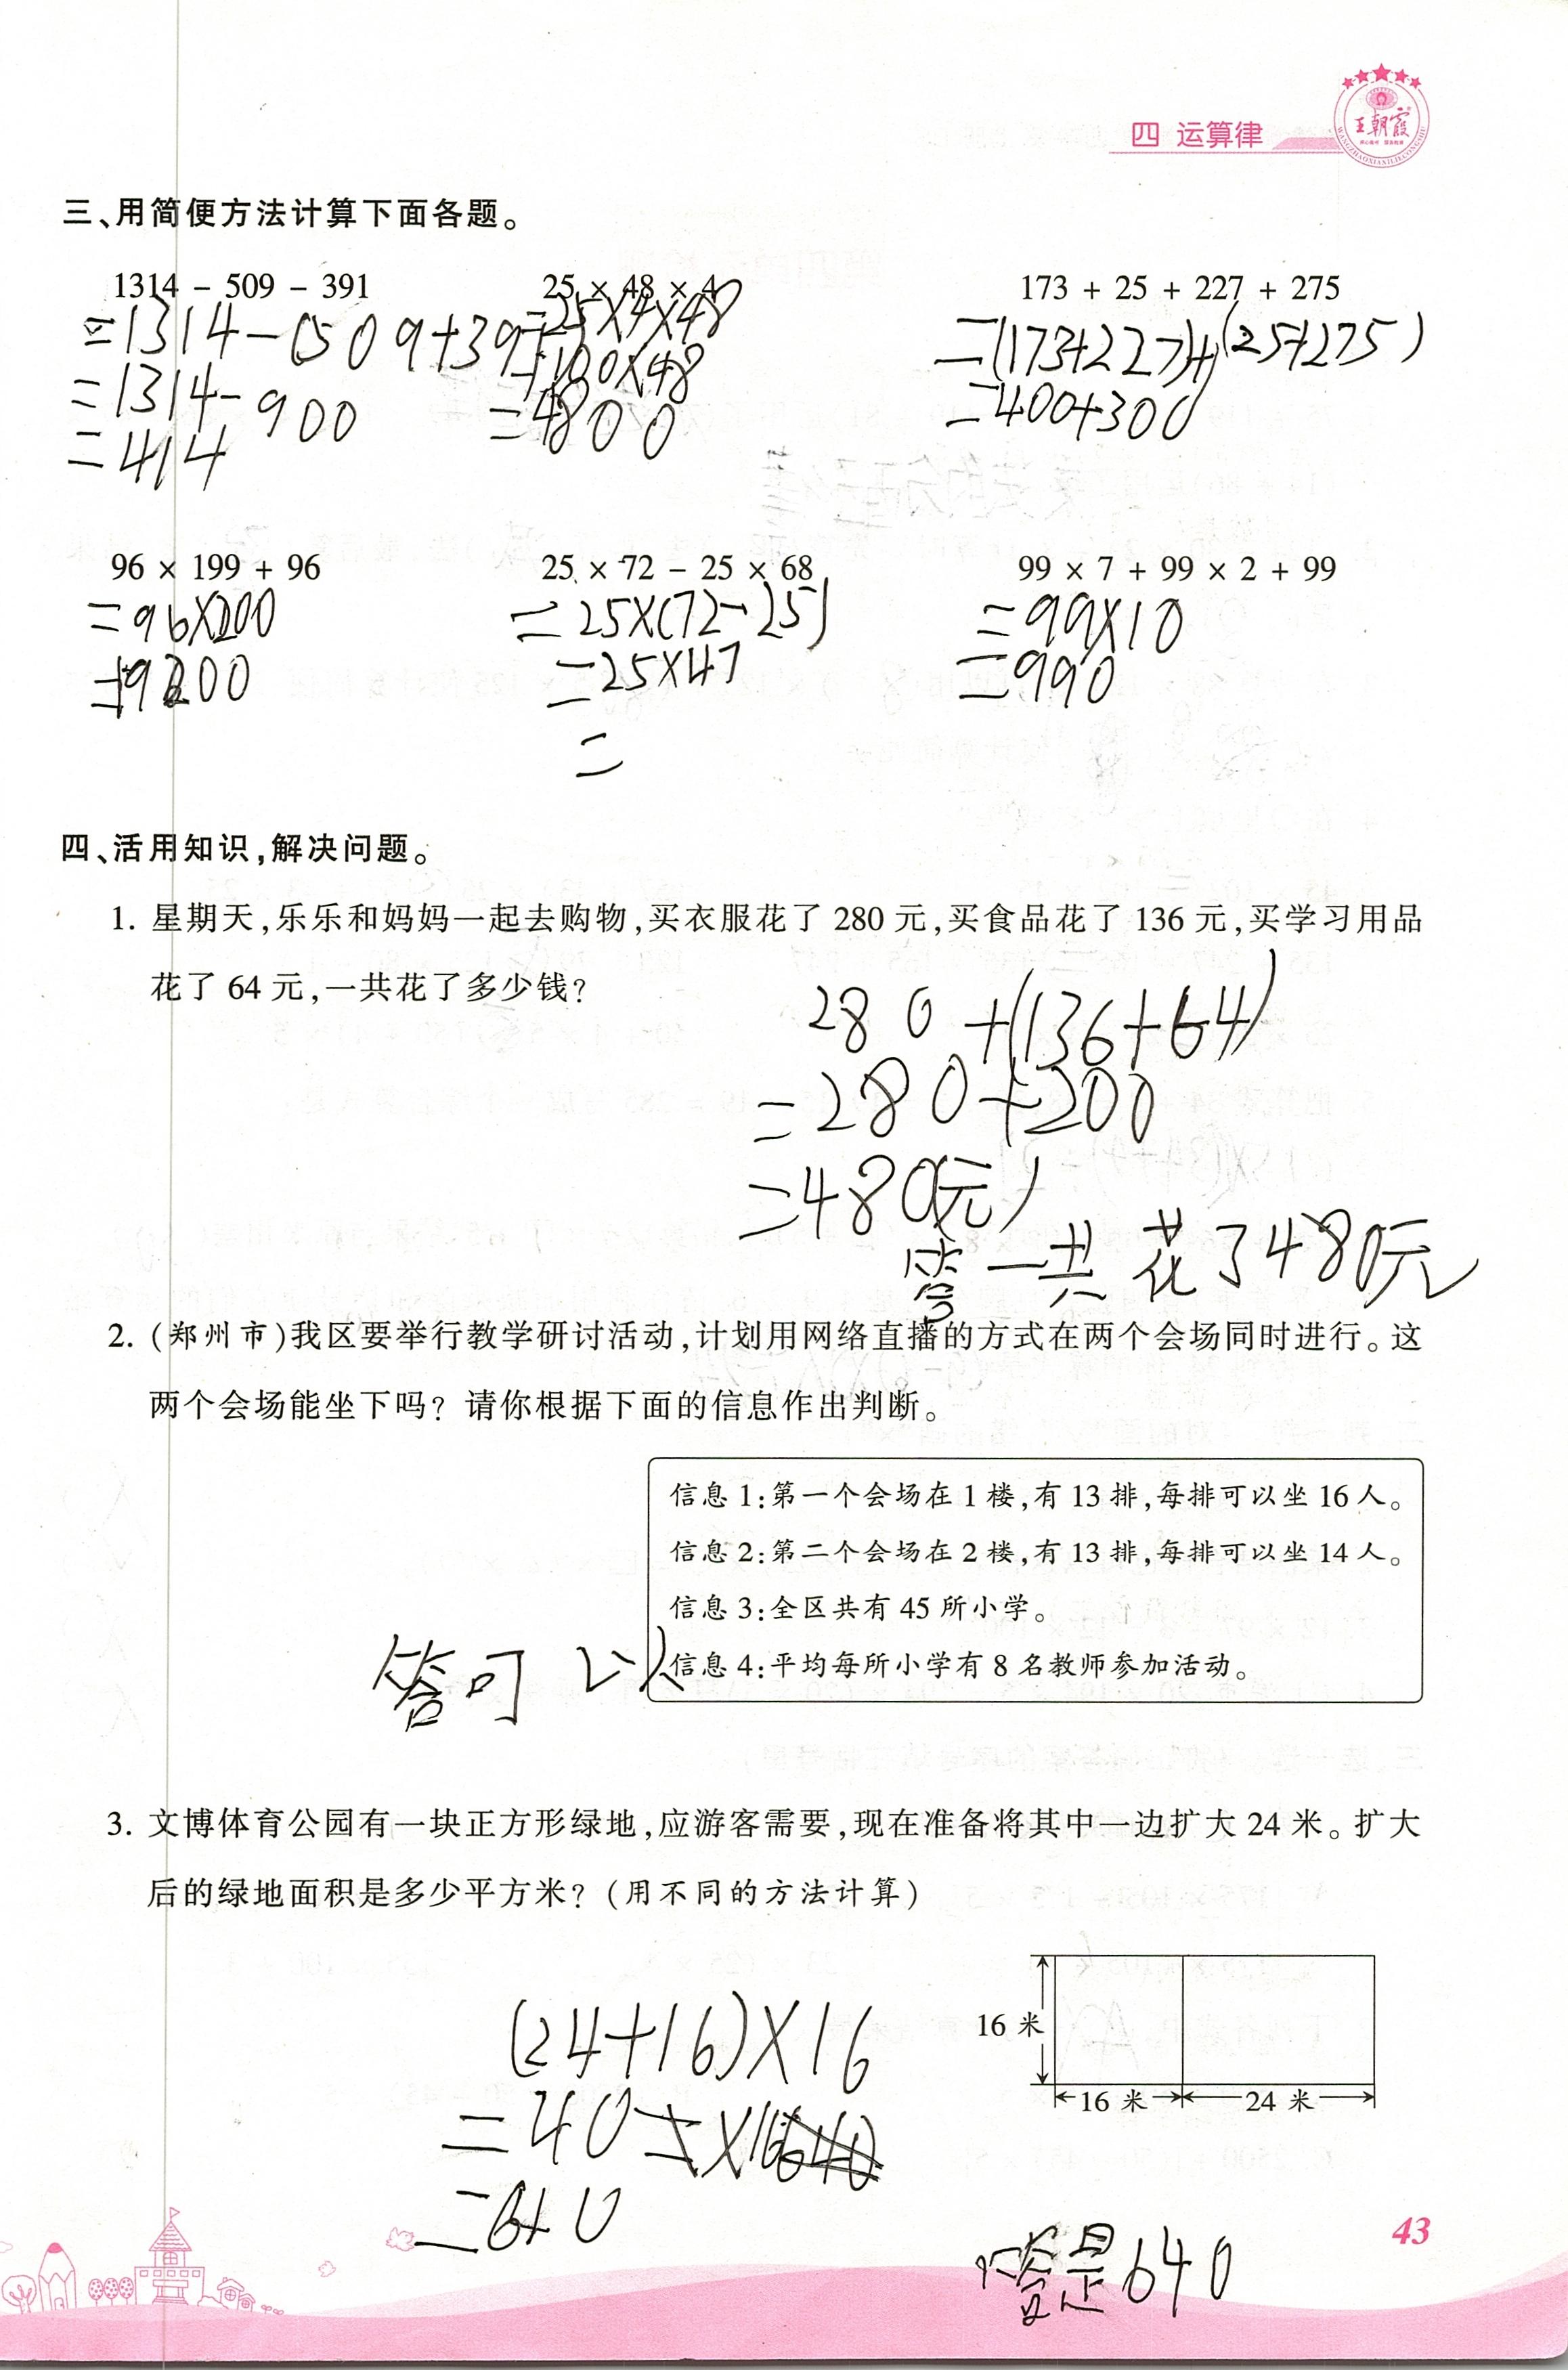 四 运算律
王朝霞
三、用简便方法计算下面各题。
1314 - 509 - 391
=1314-(509+391)
=1314-900
=414
25 × 48 × 4
=25×4×48
=100×48
=4800
173 + 25 + 227 + 275
=(173+227)+(25+275)
=400+300
96 × 199 + 96
=96×200
=19200
25 × 72 - 25 × 68
=25×(72-25)
=25×47
=
99 × 7 + 99 × 2 + 99
=99×10
=990
四、活用知识,解决问题。
1. 星期天,乐乐和妈妈一起去购物,买衣服花了 280 元,买食品花了 136 元,买学习用品
花了 64 元,一共花了多少钱?
280+(136+64)
=280+200
=480(元)
答一共花了480元
2. (郑州市)我区要举行教学研讨活动,计划用网络直播的方式在两个会场同时进行。这
两个会场能坐下吗? 请你根据下面的信息作出判断。
信息 1:第一个会场在 1 楼,有 13 排,每排可以坐 16 人。
信息 2:第二个会场在 2 楼,有 13 排,每排可以坐 14 人。
信息 3:全区共有 45 所小学。
信息 4:平均每所小学有 8 名教师参加活动。
答可以
3. 文博体育公园有一块正方形绿地,应游客需要,现在准备将其中一边扩大 24 米。扩大
后的绿地面积是多少平方米? (用不同的方法计算)
16 米
16 米
24 米
(24+16)×16
=40××16
=640
答是640
43